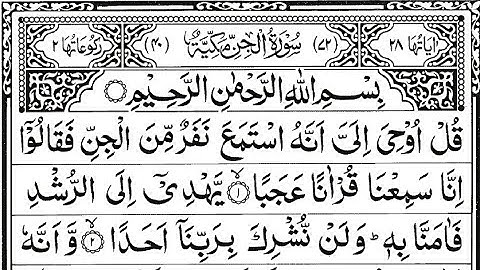 اٰيَاتُهَا ٢٨ (٧٢) سُوْرَةُ الْجِنِّ مَكِّيَّةٌ (٤٠) رُكُوْعَاتُهَا ٢
بِسْمِ اللّٰهِ الرَّحْمٰنِ الرَّحِيْمِ
قُلْ اُوْحِيَ اِلَيَّ اَنَّهُ اسْتَمَعَ نَفَرٌ مِّنَ الْجِنِّ فَقَالُوْۤا
اِنَّا سَمِعْنَا قُرْاٰنًا عَجَبًا ۙ﴿١﴾ يَّهْدِيْۤ اِلَى الرُّشْدِ
فَاٰمَنَّا بِهٖ ؕ وَلَنْ نُّشْرِكَ بِرَبِّنَاۤ اَحَدًا ۙ﴿٢﴾ وَّاَنَّهٗ